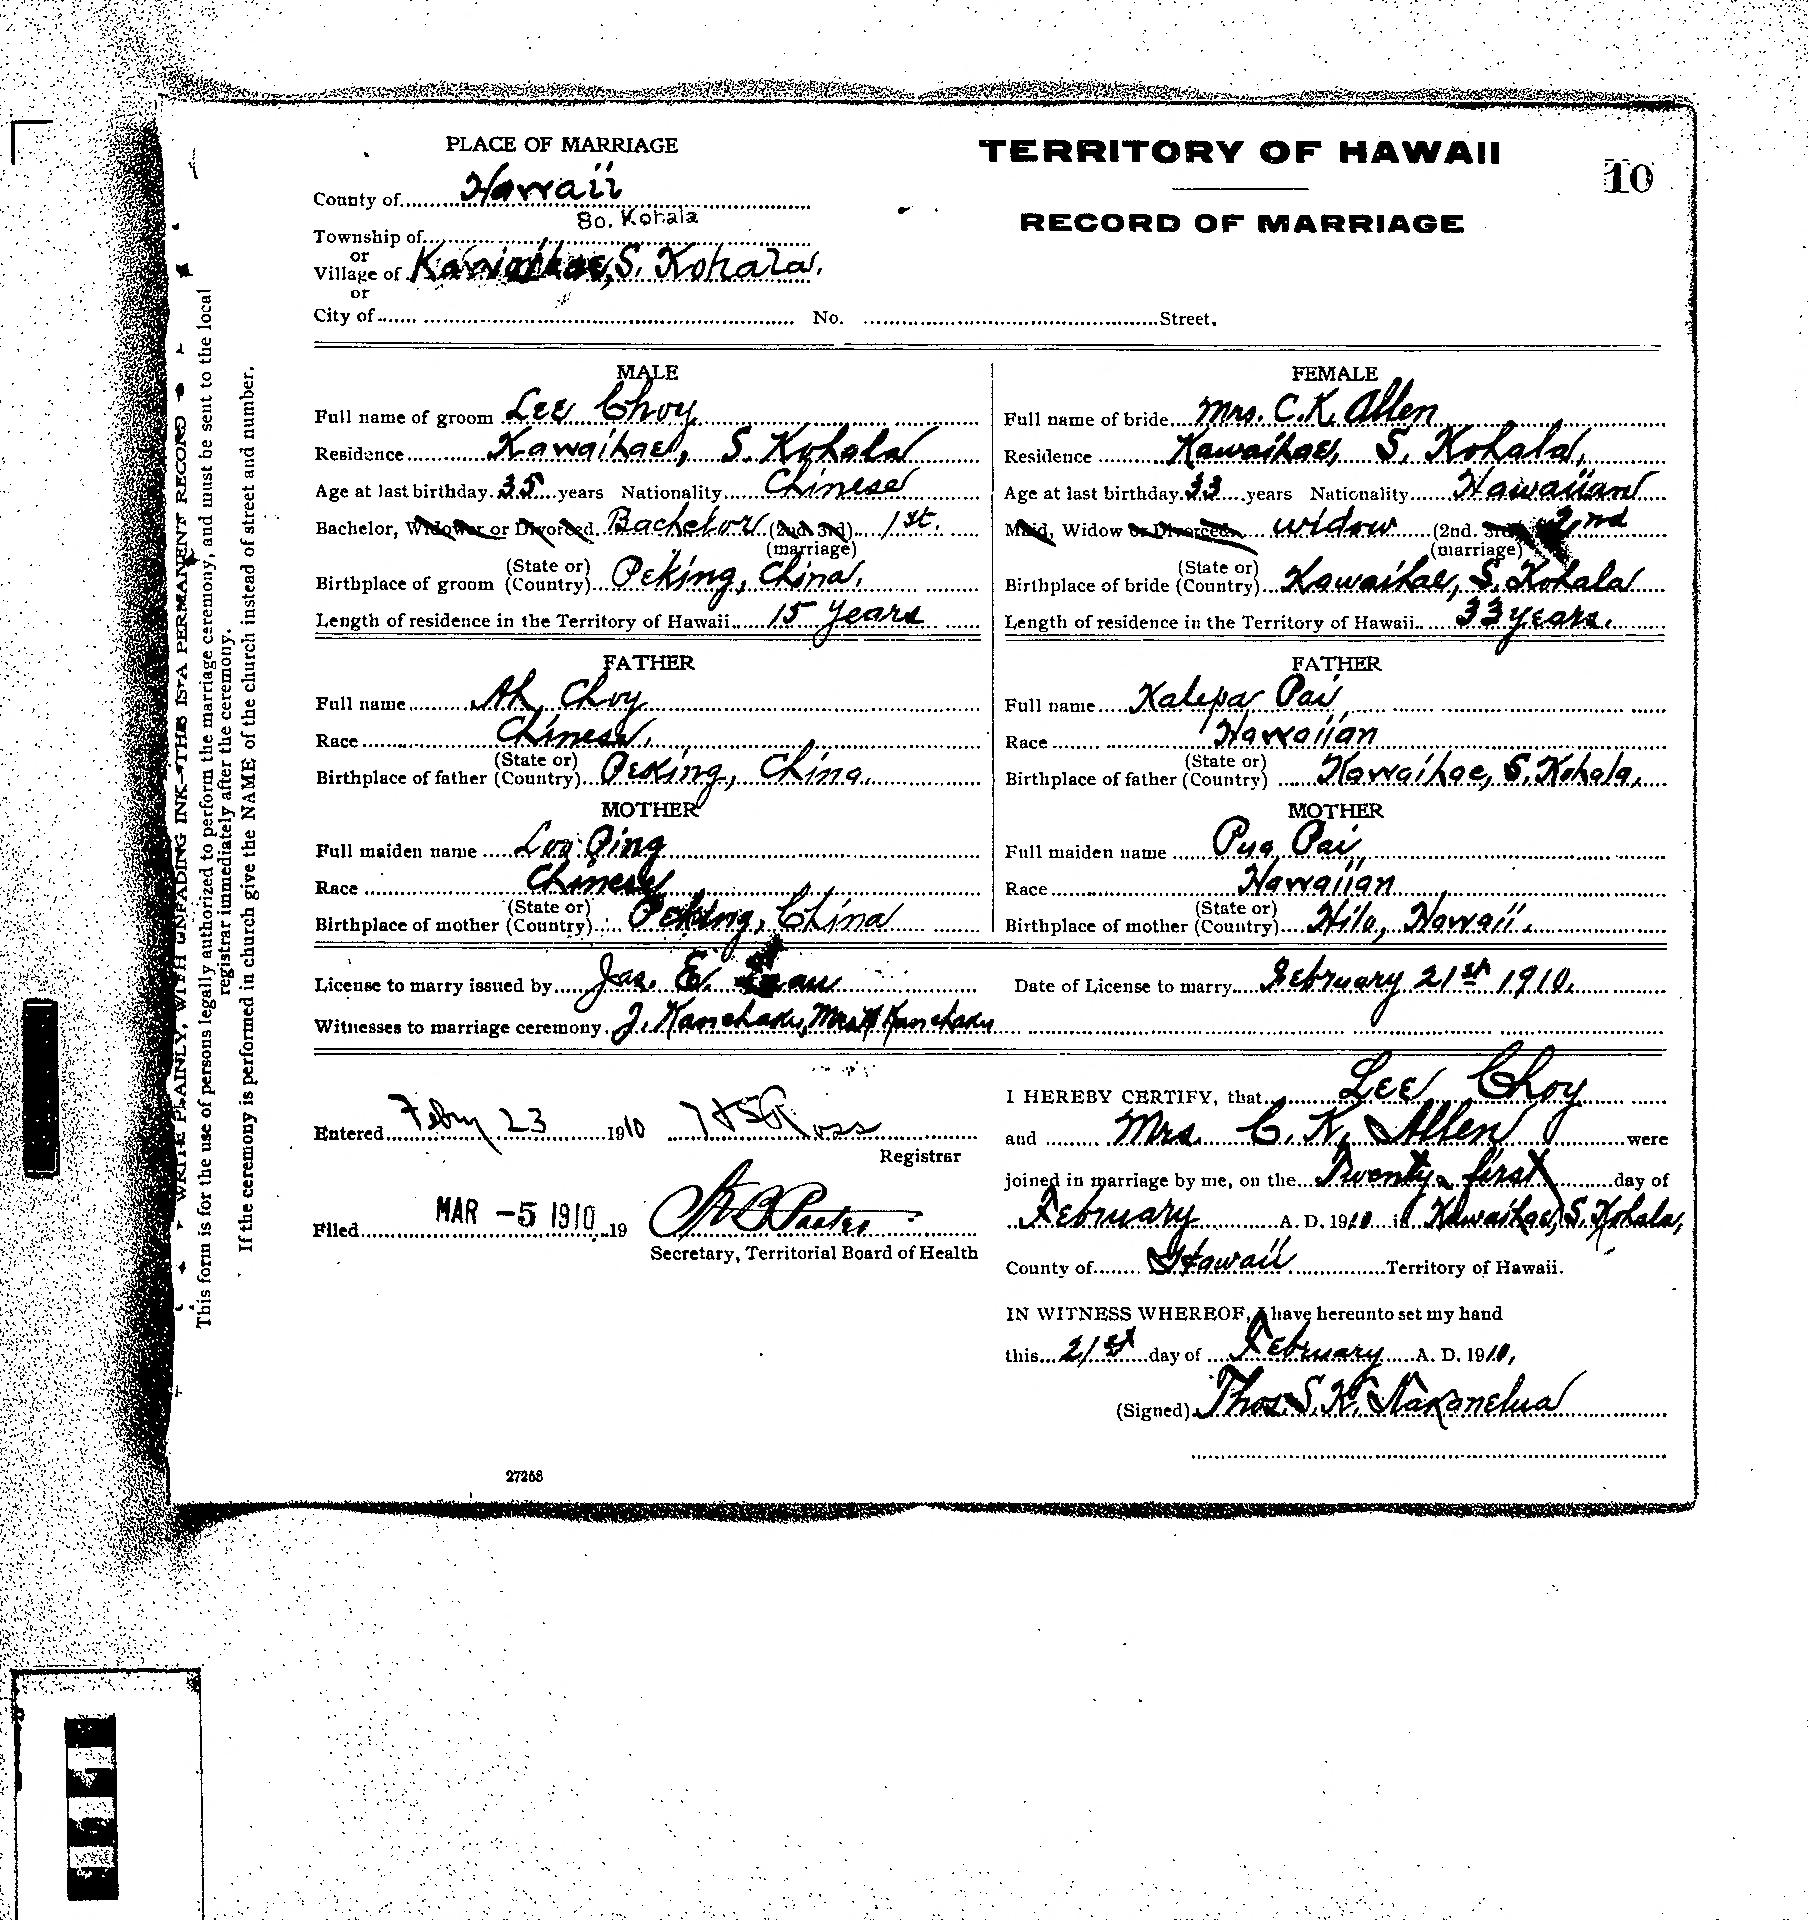 PLACE OF MARRIAGE
TERRITORY OF HAWAII
10
County of Hawaii
RECORD OF MARRIAGE
So. Kohala
Township of
or
Village of Kawaihae, S. Kohala.
or
City of No. Street.
MALE
Full name of groom Lee Choy
Residence Kawaihae, S. Kohala
Age at last birthday 35 years Nationality Chinese
Bachelor, Widower or Divorced Bachelor (2nd. 3rd) 1st.
(marriage)
Birthplace of groom (State or Country) Peking, China.
Length of residence in the Territory of Hawaii 15 years
FATHER
Full name Ah Choy
Race Chinese.
Birthplace of father (State or Country) Peking, China.
MOTHER
Full maiden name Ping
Race Chinese
Birthplace of mother (State or Country) Peking, China
FEMALE
Full name of bride Mrs. C. K. Allen
Residence Kawaihae, S. Kohala,
Age at last birthday 33 years Nationality Hawaiian
Maid, Widow or Divorced widow (2nd. 3rd) 2nd
(marriage)
Birthplace of bride (State or Country) Kawaihae, S. Kohala
Length of residence in the Territory of Hawaii 33 years.
FATHER
Full name Kalepa Pai
Race Hawaiian
Birthplace of father (State or Country) Kawaihae, S. Kohala.
MOTHER
Full maiden name Pua Pai
Race Hawaiian
Birthplace of mother (State or Country) Hilo, Hawaii.
License to marry issued by Jas. E.
Date of License to marry February 21st 1910.
Witnesses to marriage ceremony J.
Entered Febry 23 1910
Registrar
Filed MAR -5 1910 19
Secretary, Territorial Board of Health
I HEREBY CERTIFY, that Lee Choy
and Mrs. C. K. Allen were
joined in marriage by me, on the Twenty first day of
February A. D. 1910 in Kawaihae, S. Kohala,
County of Hawaii Territory of Hawaii.
IN WITNESS WHEREOF, I have hereunto set my hand
this 21st day of February A. D. 1910,
(Signed) Thos. S. K. Nakanelua
27268
WRITE PLAINLY, WITH UNFADING INK—THIS IS A PERMANENT RECORD
This form is for the use of persons legally authorized to perform the marriage ceremony, and must be sent to the local
registrar immediately after the ceremony.
If the ceremony is performed in church give the NAME of the church instead of street and number.